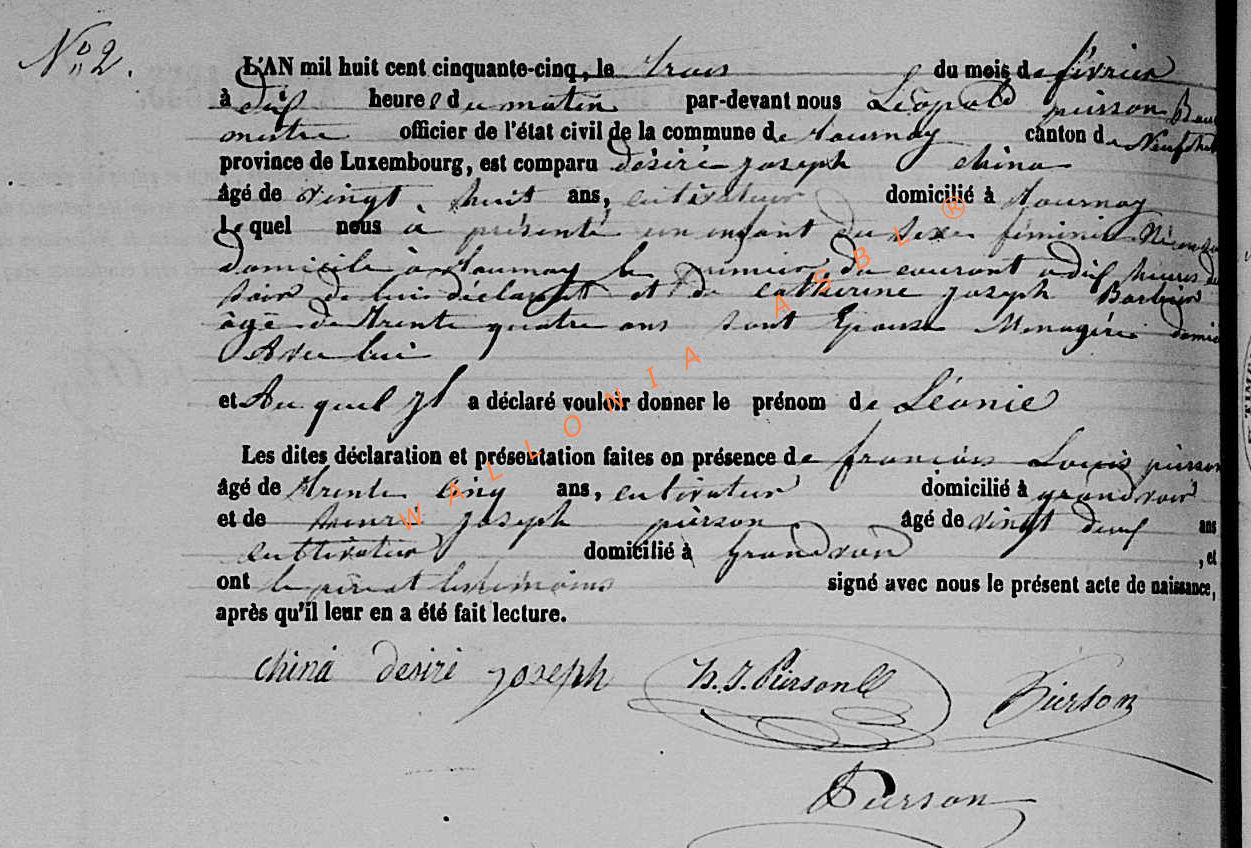 No 2.
L'AN mil huit cent cinquante-cinq, le trois du mois de février
à dix heures du matin par-devant nous Léopold pierson Bourg
mestre officier de l'état civil de la commune de tournay canton de Neufchat
province de Luxembourg, est comparu désiré joseph china
âgé de vingt huit ans, cultivateur domicilié à tournay
lequel nous à présenté un enfant du sexe féminin Né en son
domicile à tournay le premier du courant a dix heures du
soir de lui déclarant et de catherine joseph Barbier
âgé de trente quatre ans sont Epouse Menagère domici
Avec lui
et Au quel jl a déclaré vouloir donner le prénom de Léonie
Les dites déclaration et présentation faites en présence de francois Louis pierson
âgé de trente cinq ans, cultivateur domicilié à grandvoir
et de henri joseph pierson âgé de vingt deux ans
cultivateur domicilié à grandvoir, et
ont le père et les témoins signé avec nous le présent acte de naissance,
après qu'il leur en a été fait lecture.
china desiré joseph H. J. Pierson Pierson
Pierson
WALLONIA ASBL ®